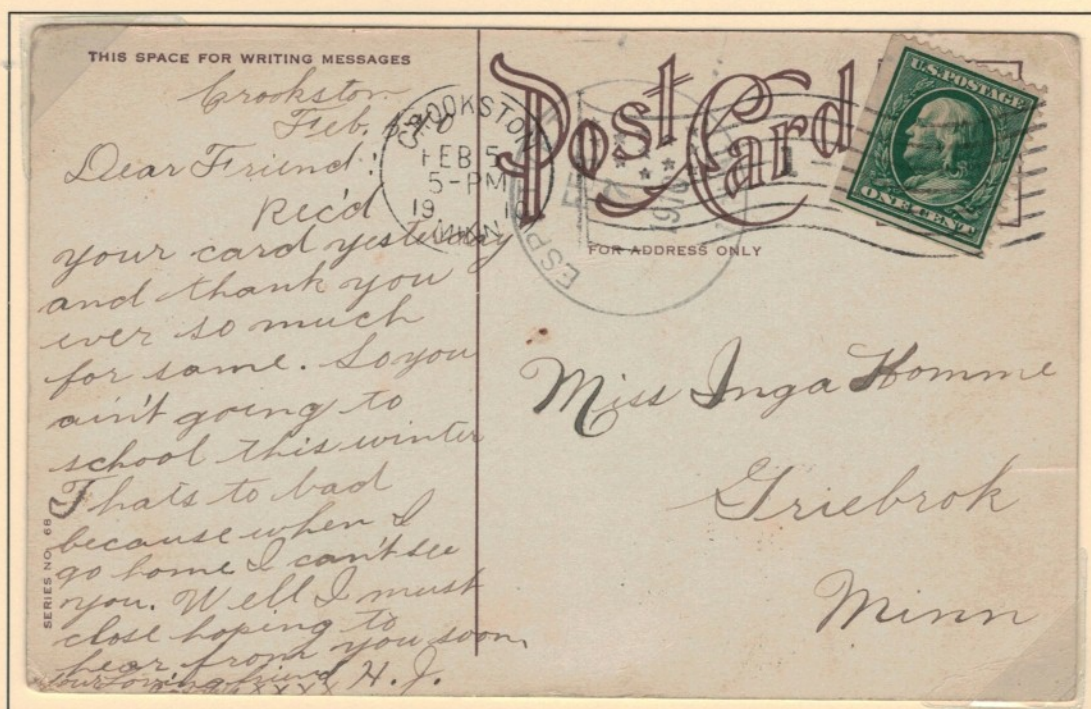 THIS SPACE FOR WRITING MESSAGES
Crookston
Feb.
Dear Friend!
Rec'd
your card yesterday
and thank you
ever so much
for same. So you
ain't going to
school this winter
Thats to bad
because when I
go home I can't see
you. Well I must
close hoping to
hear from you soon,
your Loving friend
H. J.
SERIES NO. 68
Post Card
CROOKSTON
FEB 5
5-PM
19 10
MINN
ESP
1910
FOR ADDRESS ONLY
U.S. POSTAGE
ONE CENT
Miss Inga Homme
Griebrok
Minn